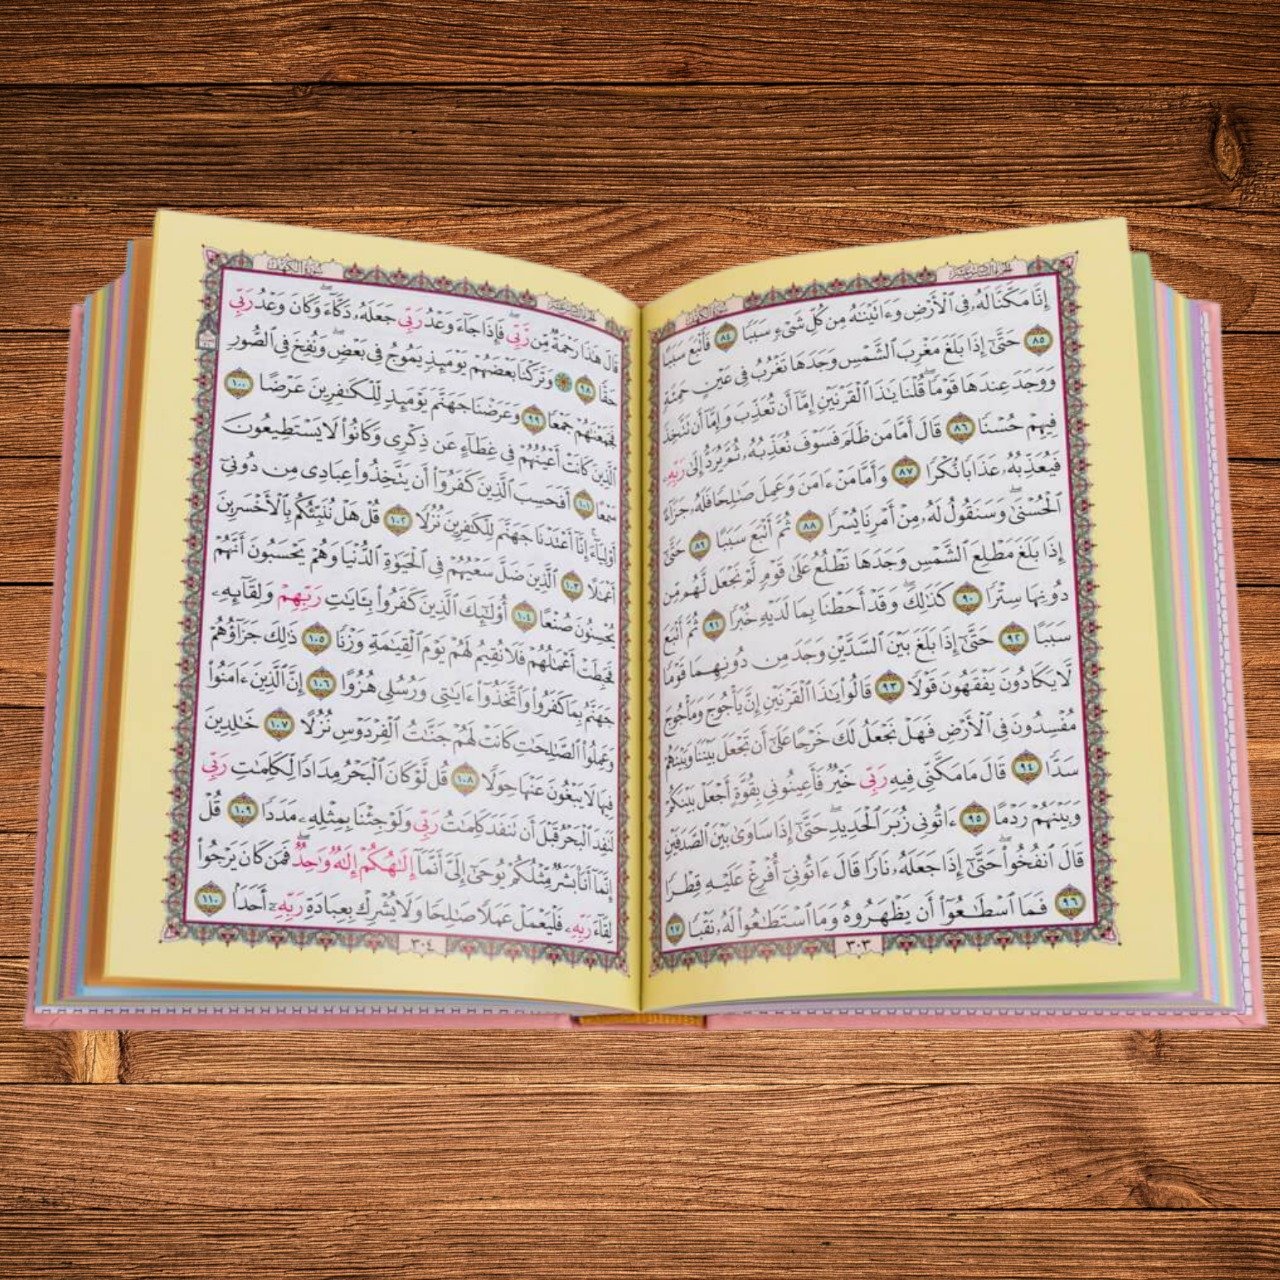 سورة الكهف
الجزء السادس عشر
إِنَّا مَكَّنَّا لَهُۥ فِى ٱلْأَرْضِ وَءَاتَيْنَـٰهُ مِن كُلِّ شَىْءٍ سَبَبًا ٨٤ فَأَتْبَعَ سَبَبًا
٨٥ حَتَّىٰٓ إِذَا بَلَغَ مَغْرِبَ ٱلشَّمْسِ وَجَدَهَا تَغْرُبُ فِى عَيْنٍ حَمِئَةٍ
وَوَجَدَ عِندَهَا قَوْمًا ۗ قُلْنَا يَـٰذَا ٱلْقَرْنَيْنِ إِمَّآ أَن تُعَذِّبَ وَإِمَّآ أَن تَتَّخِذَ
فِيهِمْ حُسْنًا ٨٦ قَالَ أَمَّا مَن ظَلَمَ فَسَوْفَ نُعَذِّبُهُۥ ثُمَّ يُرَدُّ إِلَىٰ رَبِّهِۦ
فَيُعَذِّبُهُۥ عَذَابًا نُّكْرًا ٨٧ وَأَمَّا مَنْ ءَامَنَ وَعَمِلَ صَـٰلِحًا فَلَهُۥ جَزَآءً
ٱلْحُسْنَىٰ ۖ وَسَنَقُولُ لَهُۥ مِنْ أَمْرِنَا يُسْرًا ٨٨ ثُمَّ أَتْبَعَ سَبَبًا ٨٩ حَتَّىٰٓ
إِذَا بَلَغَ مَطْلِعَ ٱلشَّمْسِ وَجَدَهَا تَطْلُعُ عَلَىٰ قَوْمٍ لَّمْ نَجْعَل لَّهُم مِّن
دُونِهَا سِتْرًا ٩٠ كَذَٰلِكَ ۖ وَقَدْ أَحَطْنَا بِمَا لَدَيْهِ خُبْرًا ٩١ ثُمَّ أَتْبَعَ
سَبَبًا ٩٢ حَتَّىٰٓ إِذَا بَلَغَ بَيْنَ ٱلسَّدَّيْنِ وَجَدَ مِن دُونِهِمَا قَوْمًا
لَّا يَكَادُونَ يَفْقَهُونَ قَوْلًا ٩٣ قَالُوا۟ يَـٰذَا ٱلْقَرْنَيْنِ إِنَّ يَأْجُوجَ وَمَأْجُوجَ
مُفْسِدُونَ فِى ٱلْأَرْضِ فَهَلْ نَجْعَلُ لَكَ خَرْجًا عَلَىٰٓ أَن تَجْعَلَ بَيْنَنَا وَبَيْنَهُمْ
سَدًّا ٩٤ قَالَ مَا مَكَّنِّى فِيهِ رَبِّى خَيْرٌ فَأَعِينُونِى بِقُوَّةٍ أَجْعَلْ بَيْنَكُمْ
وَبَيْنَهُمْ رَدْمًا ٩٥ ءَاتُونِى زُبَرَ ٱلْحَدِيدِ ۖ حَتَّىٰٓ إِذَا سَاوَىٰ بَيْنَ ٱلصَّدَفَيْنِ
قَالَ ٱنفُخُوا۟ ۖ حَتَّىٰٓ إِذَا جَعَلَهُۥ نَارًا قَالَ ءَاتُونِىٓ أُفْرِغْ عَلَيْهِ قِطْرًا
٩٦ فَمَا ٱسْطَـٰعُوٓا۟ أَن يَظْهَرُوهُ وَمَا ٱسْتَطَـٰعُوا۟ لَهُۥ نَقْبًا ٩٧
٣٠٣
سورة الكهف
الجزء السادس عشر
قَالَ هَـٰذَا رَحْمَةٌ مِّن رَّبِّى ۖ فَإِذَا جَآءَ وَعْدُ رَبِّى جَعَلَهُۥ دَكَّآءَ ۖ وَكَانَ وَعْدُ رَبِّى
حَقًّا ٩٨ وَتَرَكْنَا بَعْضَهُمْ يَوْمَئِذٍ يَمُوجُ فِى بَعْضٍ ۖ وَنُفِخَ فِى ٱلصُّورِ
فَجَمَعْنَـٰهُمْ جَمْعًا ٩٩ وَعَرَضْنَا جَهَنَّمَ يَوْمَئِذٍ لِّلْكَـٰفِرِينَ عَرْضًا ١٠٠
ٱلَّذِينَ كَانَتْ أَعْيُنُهُمْ فِى غِطَآءٍ عَن ذِكْرِى وَكَانُوا۟ لَا يَسْتَطِيعُونَ
سَمْعًا ١٠١ أَفَحَسِبَ ٱلَّذِينَ كَفَرُوٓا۟ أَن يَتَّخِذُوا۟ عِبَادِى مِن دُونِىٓ
أَوْلِيَآءَ ۚ إِنَّآ أَعْتَدْنَا جَهَنَّمَ لِلْكَـٰفِرِينَ نُزُلًا ١٠٢ قُلْ هَلْ نُنَبِّئُكُم بِٱلْأَخْسَرِينَ
أَعْمَـٰلًا ١٠٣ ٱلَّذِينَ ضَلَّ سَعْيُهُمْ فِى ٱلْحَيَوٰةِ ٱلدُّنْيَا وَهُمْ يَحْسَبُونَ أَنَّهُمْ
يُحْسِنُونَ صُنْعًا ١٠٤ أُو۟لَـٰٓئِكَ ٱلَّذِينَ كَفَرُوا۟ بِـَٔايَـٰتِ رَبِّهِمْ وَلِقَآئِهِۦ
فَحَبِطَتْ أَعْمَـٰلُهُمْ فَلَا نُقِيمُ لَهُمْ يَوْمَ ٱلْقِيَـٰمَةِ وَزْنًا ١٠٥ ذَٰلِكَ جَزَآؤُهُمْ
جَهَنَّمُ بِمَا كَفَرُوا۟ وَٱتَّخَذُوٓا۟ ءَايَـٰتِى وَرُسُلِى هُزُوًا ١٠٦ إِنَّ ٱلَّذِينَ ءَامَنُوا۟
وَعَمِلُوا۟ ٱلصَّـٰلِحَـٰتِ كَانَتْ لَهُمْ جَنَّـٰتُ ٱلْفِرْدَوْسِ نُزُلًا ١٠٧ خَـٰلِدِينَ
فِيهَا لَا يَبْغُونَ عَنْهَا حِوَلًا ١٠٨ قُل لَّوْ كَانَ ٱلْبَحْرُ مِدَادًا لِّكَلِمَـٰتِ رَبِّى
لَنَفِدَ ٱلْبَحْرُ قَبْلَ أَن تَنفَدَ كَلِمَـٰتُ رَبِّى وَلَوْ جِئْنَا بِمِثْلِهِۦ مَدَدًا ١٠٩ قُلْ
إِنَّمَآ أَنَا۠ بَشَرٌ مِّثْلُكُمْ يُوحَىٰٓ إِلَىَّ أَنَّمَآ إِلَـٰهُكُمْ إِلَـٰهٌ وَٰحِدٌ ۖ فَمَن كَانَ يَرْجُوا۟
لِقَآءَ رَبِّهِۦ فَلْيَعْمَلْ عَمَلًا صَـٰلِحًا وَلَا يُشْرِكْ بِعِبَادَةِ رَبِّهِۦٓ أَحَدًۢا ١١٠
٣٠٤